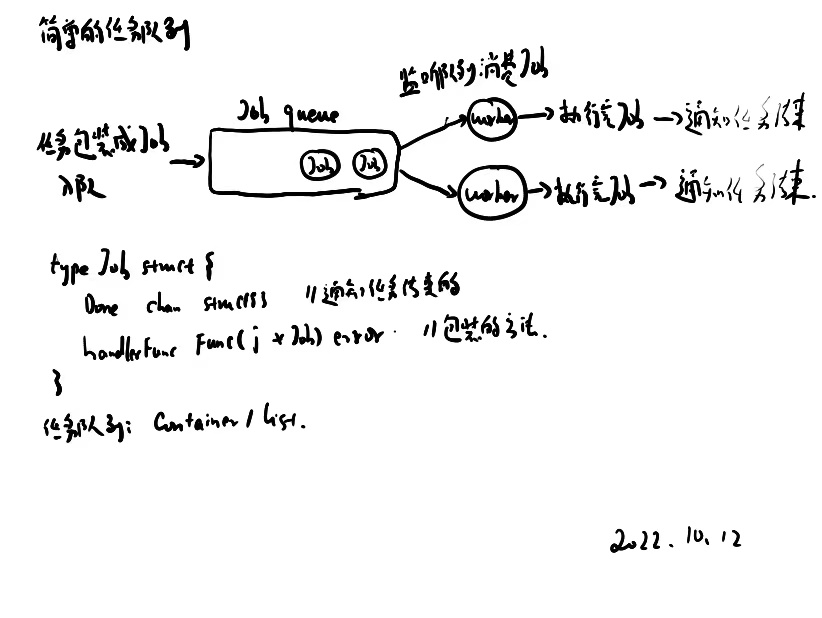 简单的任务队列
监听队列,消费Job
Job queue
任务包装成Job
入队
Job Job
worker → 执行完Job → 通知任务结束
worker → 执行完Job → 通知任务结束.
type Job struct {
Done chan struct{} //通知任务结束的
handlerFunc Func(j *Job) error //包装的方法.
}
任务队列: Container/list.
2022.10.12